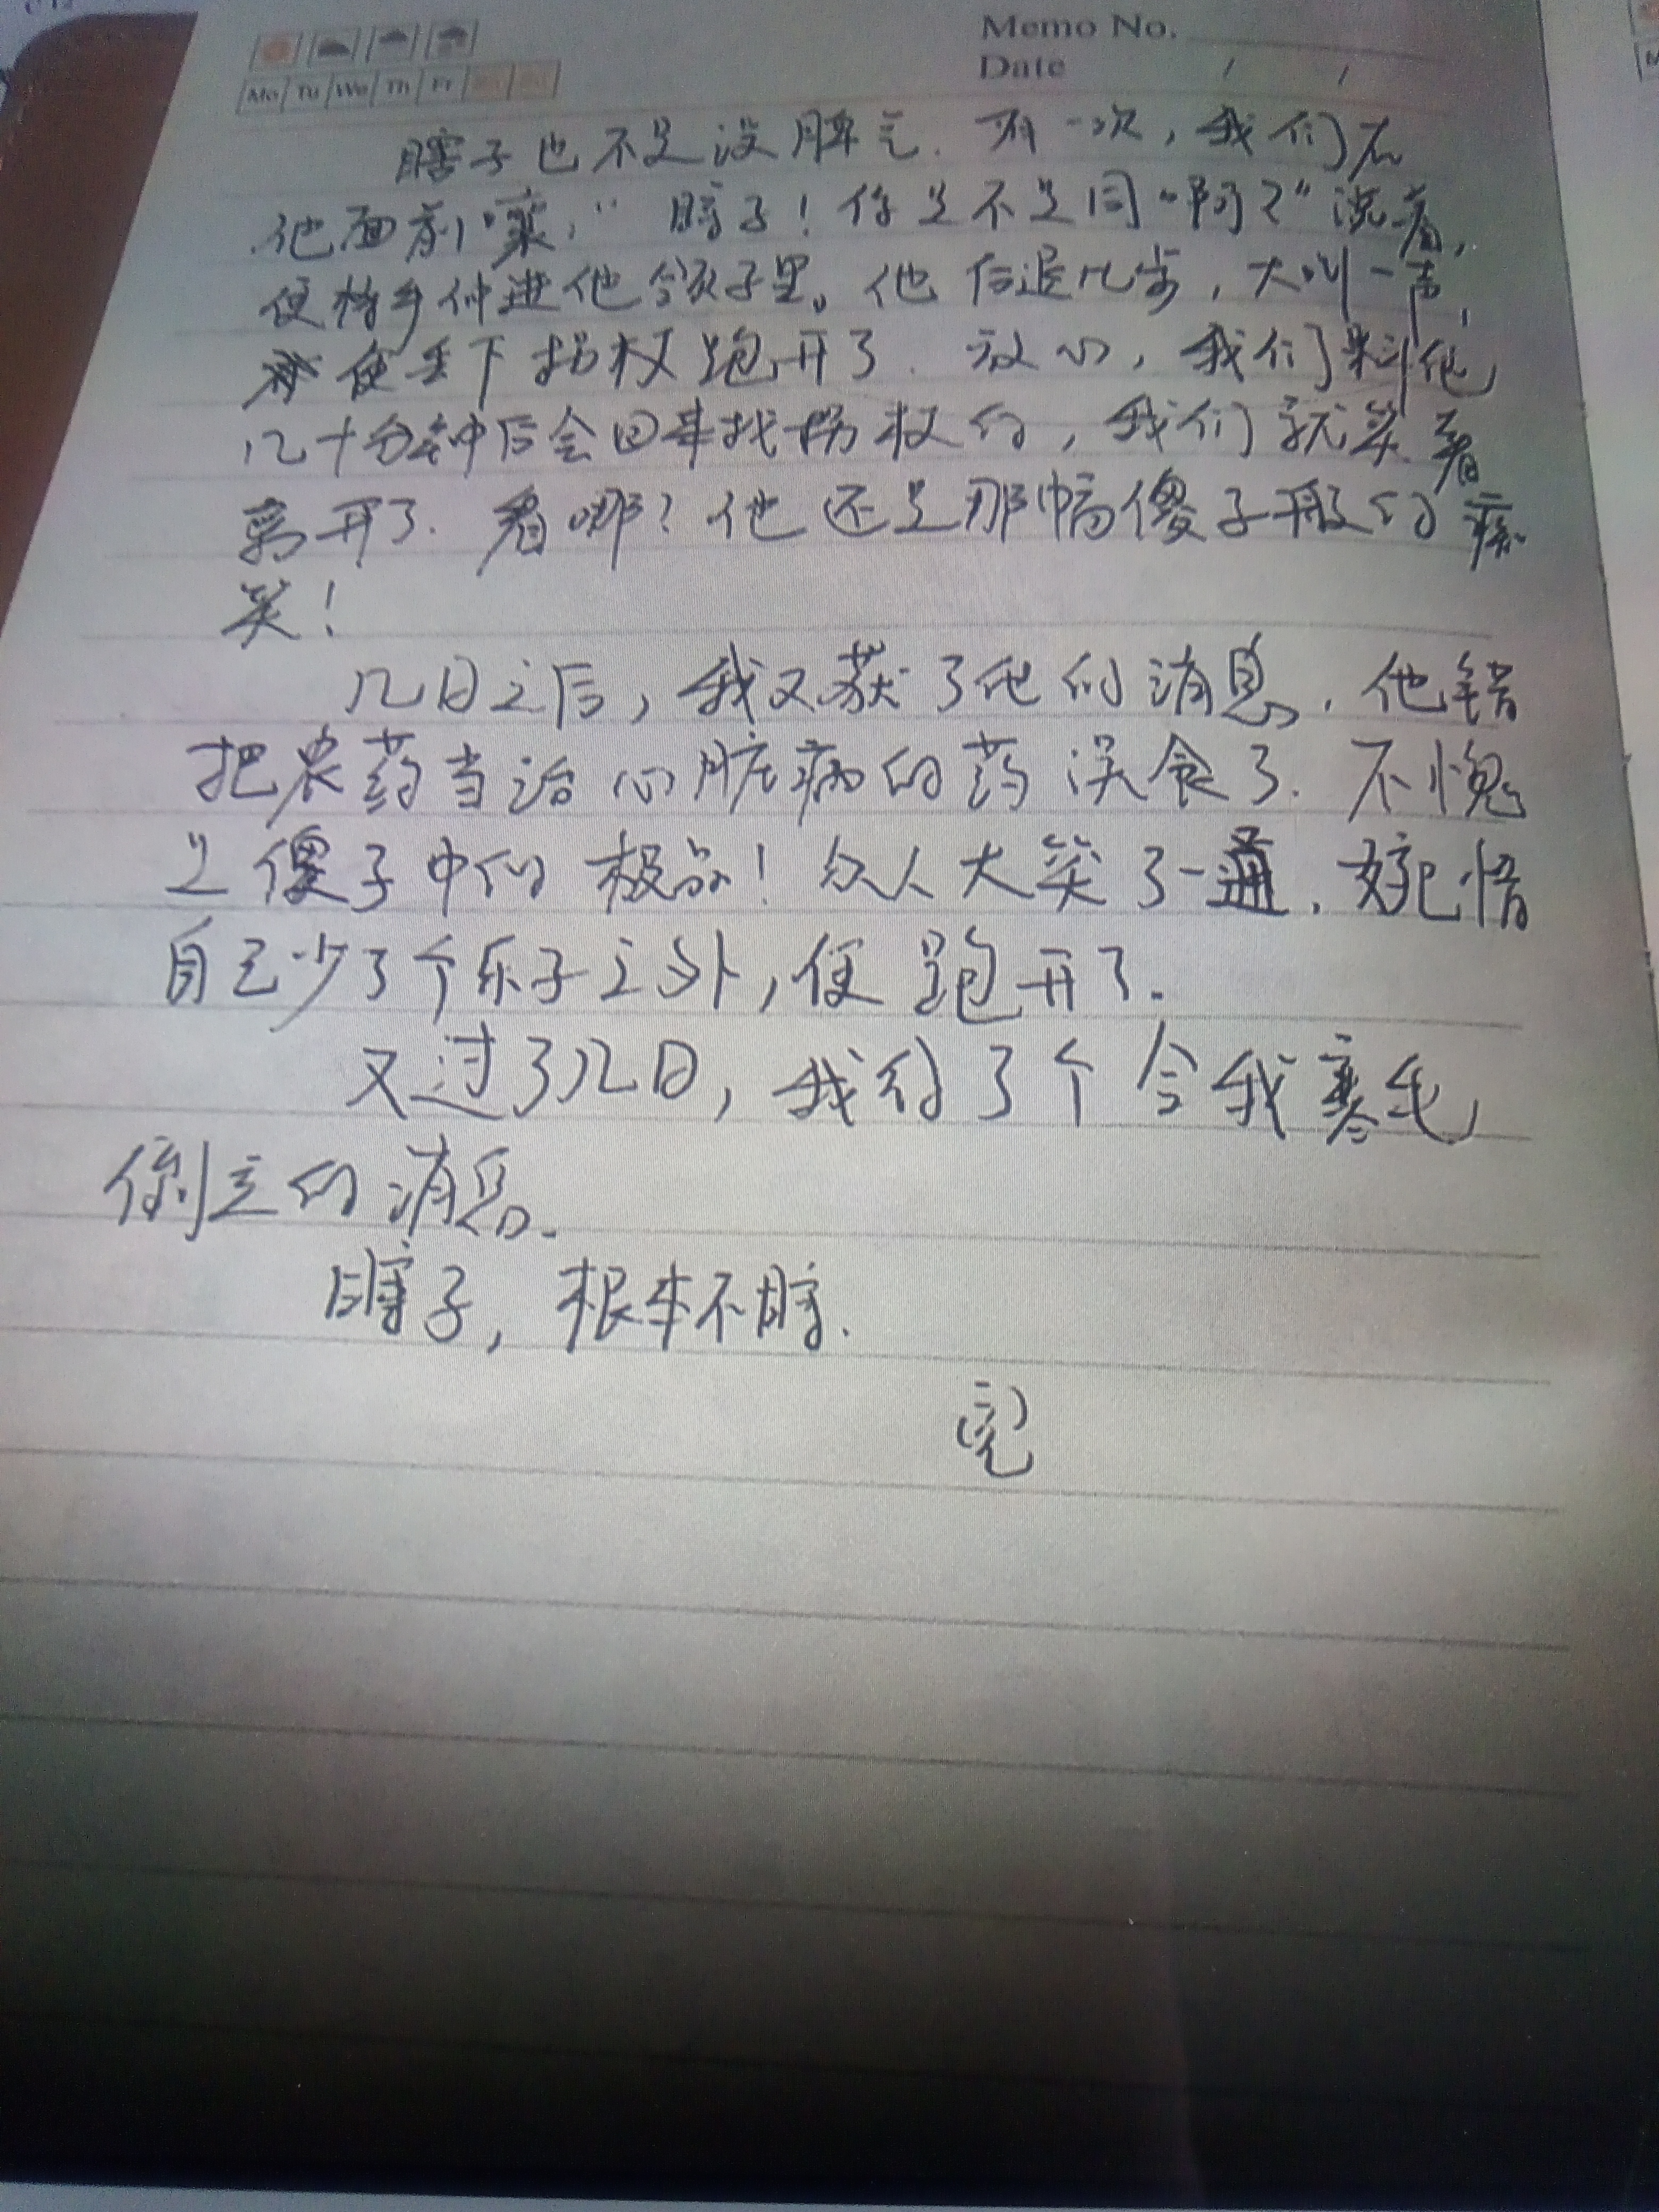 Memo No.
Date / /
Mo Tu We Th Fr
瞎子也不是没脾气. 有一次, 我们在
他面前嚷, “瞎子! 你是不是同啊?” 说着,
便将手伸进他领子里。他后退几步, 大叫一声,
便丢下拐杖跑开了. 放心, 我们料他
几十分钟后会回来找拐杖的, 我们就笑着
离开了. 看哪? 他还是那幅傻子般的痴
笑!
几日之后, 我又获了他的消息. 他错
把农药当治心脏病的药误食了. 不愧
是傻子中的极品! 众人大笑了一通. 婉惜
自己少了个乐子之外, 便跑开了.
又过了几日, 我得了个令我寒毛
倒立的消息.
瞎子, 根本不瞎.
(完)